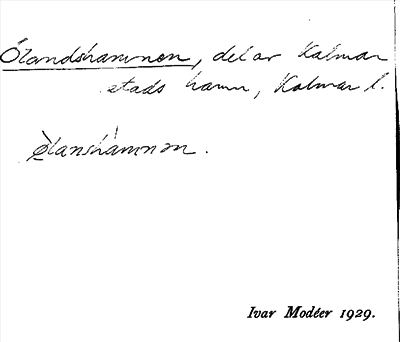 Ölandshamnen, del av Kalmar
stads hamn, Kalmar l.
ø̀lanshàmnən.
Ivar Modéer 1929.